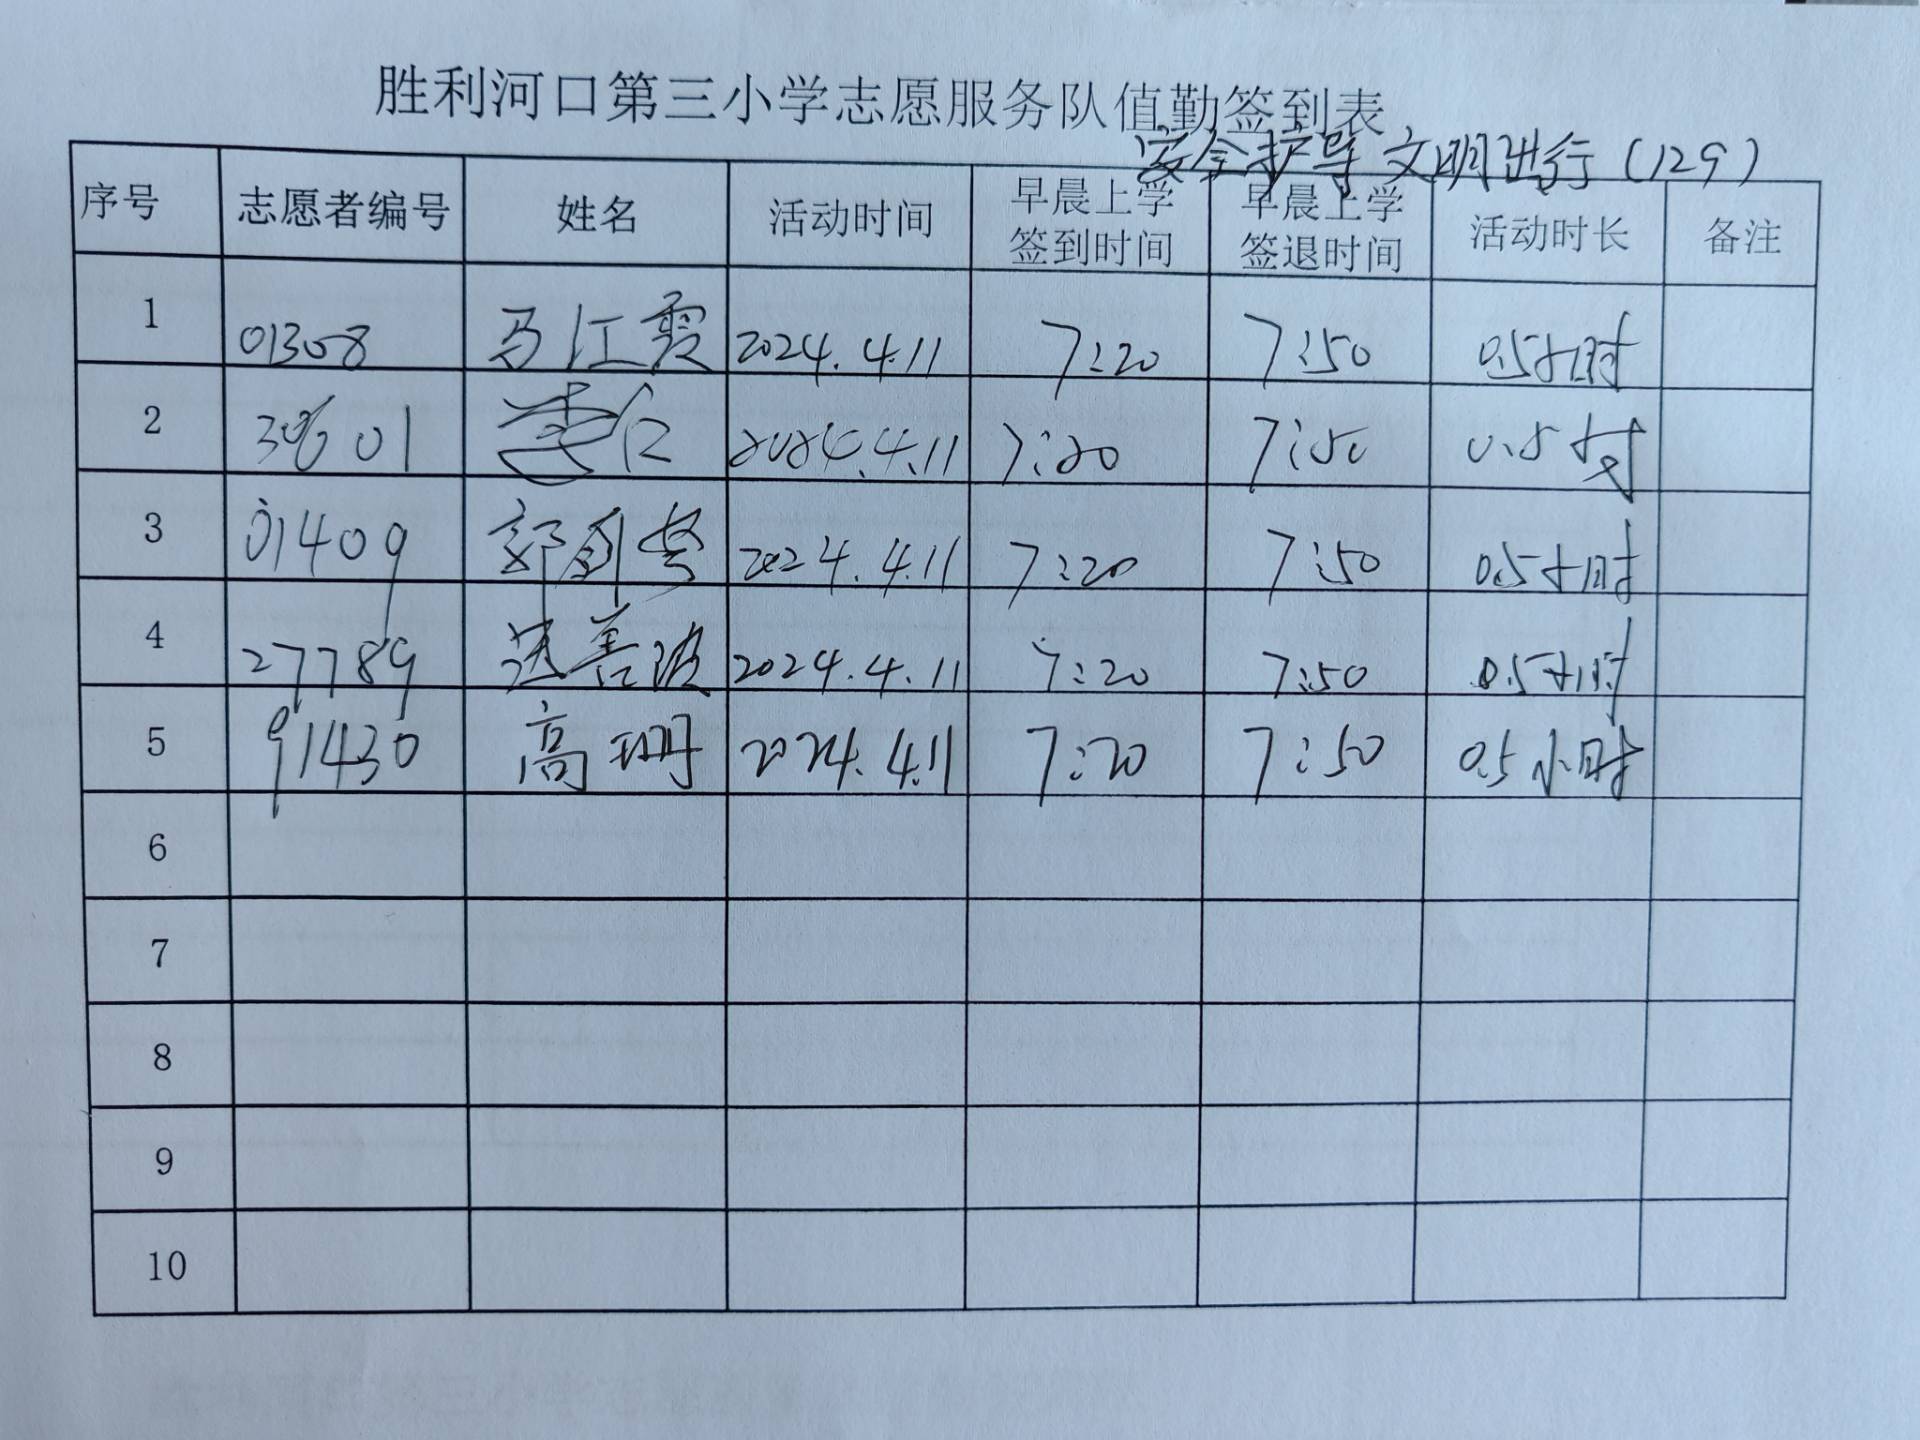 胜利河口第三小学志愿服务队值勤签到表
安全护导 文明进行（129）
序号 志愿者编号 姓名 活动时间 早晨上学签到时间 早晨上学签退时间 活动时长 备注
1 01308 马江霞 2024.4.11 7:20 7:50 0.5小时
2 01 李仁 2024.4.11 7:20 7:50 0.5小时
3 01409 郭 2024.4.11 7:20 7:50 0.5小时
4 27789 善波 2024.4.11 7:20 7:50 0.5小时
5 91430 高珊 2024.4.11 7:20 7:50 0.5小时
6
7
8
9
10